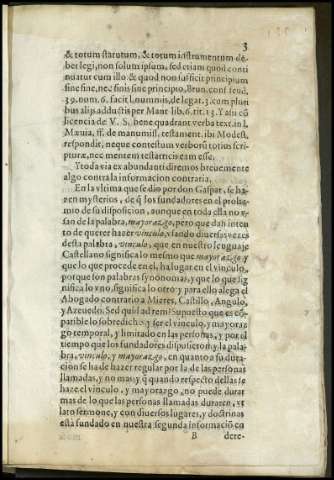 3
& totum statutum, & totum instrumentum de-
ber legi, non solum ipsum, sed etiam quod conti
niatur cum illo & quod non sufficit principium
sine fine, nec finis sine principio, Brun. cons. feud.
39. num. 6. facit l. nummis, de legat. 3. cum pluri
bus alijs adductis per Mant lib. 6. tit. 13. Y assi cō
licencia de V. S. bene quadrant verba text. in l.
Mæuia, ff. de manumiss. testament. ibi Modest.
respondit, neque contestum verborū totius scri-
pturæ, nec mentem testantis eam esse.
Y toda via ex abundanti diremos breuemente
algo contra la informacion contraria.
En la vltima que se dio por don Gaspar, se ha-
zen mysterios, de q̄ los fundadores en el prohe-
mio de su disposicion, aunque en toda ella no v-
san de la palabra, mayorazgo, pero que dan inten
to de querer hazer vinculo, vsando diuersas vezes
desta palabra, vinculo, que en nuestro lenguaje
Castellano significa lo mesmo que mayorazgo, y
que lo que procede en el, ha lugar en el vinculo,
porque son palabras synonomas, y que lo que sig
nifica lo vno, significa lo otro: y para ello alega el
Abogado contrario a Mieres, Castillo, Angulo,
y Azeuedo. Sed quid ad rem? Supuesto que es cō
patible lo sobredicho: y ser el vinculo, y mayoraz
go temporal, y limitado en las personas, y por el
tiempo que los fundadores dispusieron: y la pala-
bra, vinculo, y mayorazgo, en quanto a su dura-
cion se ha de hazer regular por la de las personas
llamadas, y no mas: y q̄ quando respecto dellas se
haze el vinculo, y mayorazgo, no puede durar
mas de lo que las personas llamadas duraren, vt
lato sermone, y con diuersos lugares, y doctrinas
està fundado en nuestra segunda informaciō en
B dere-